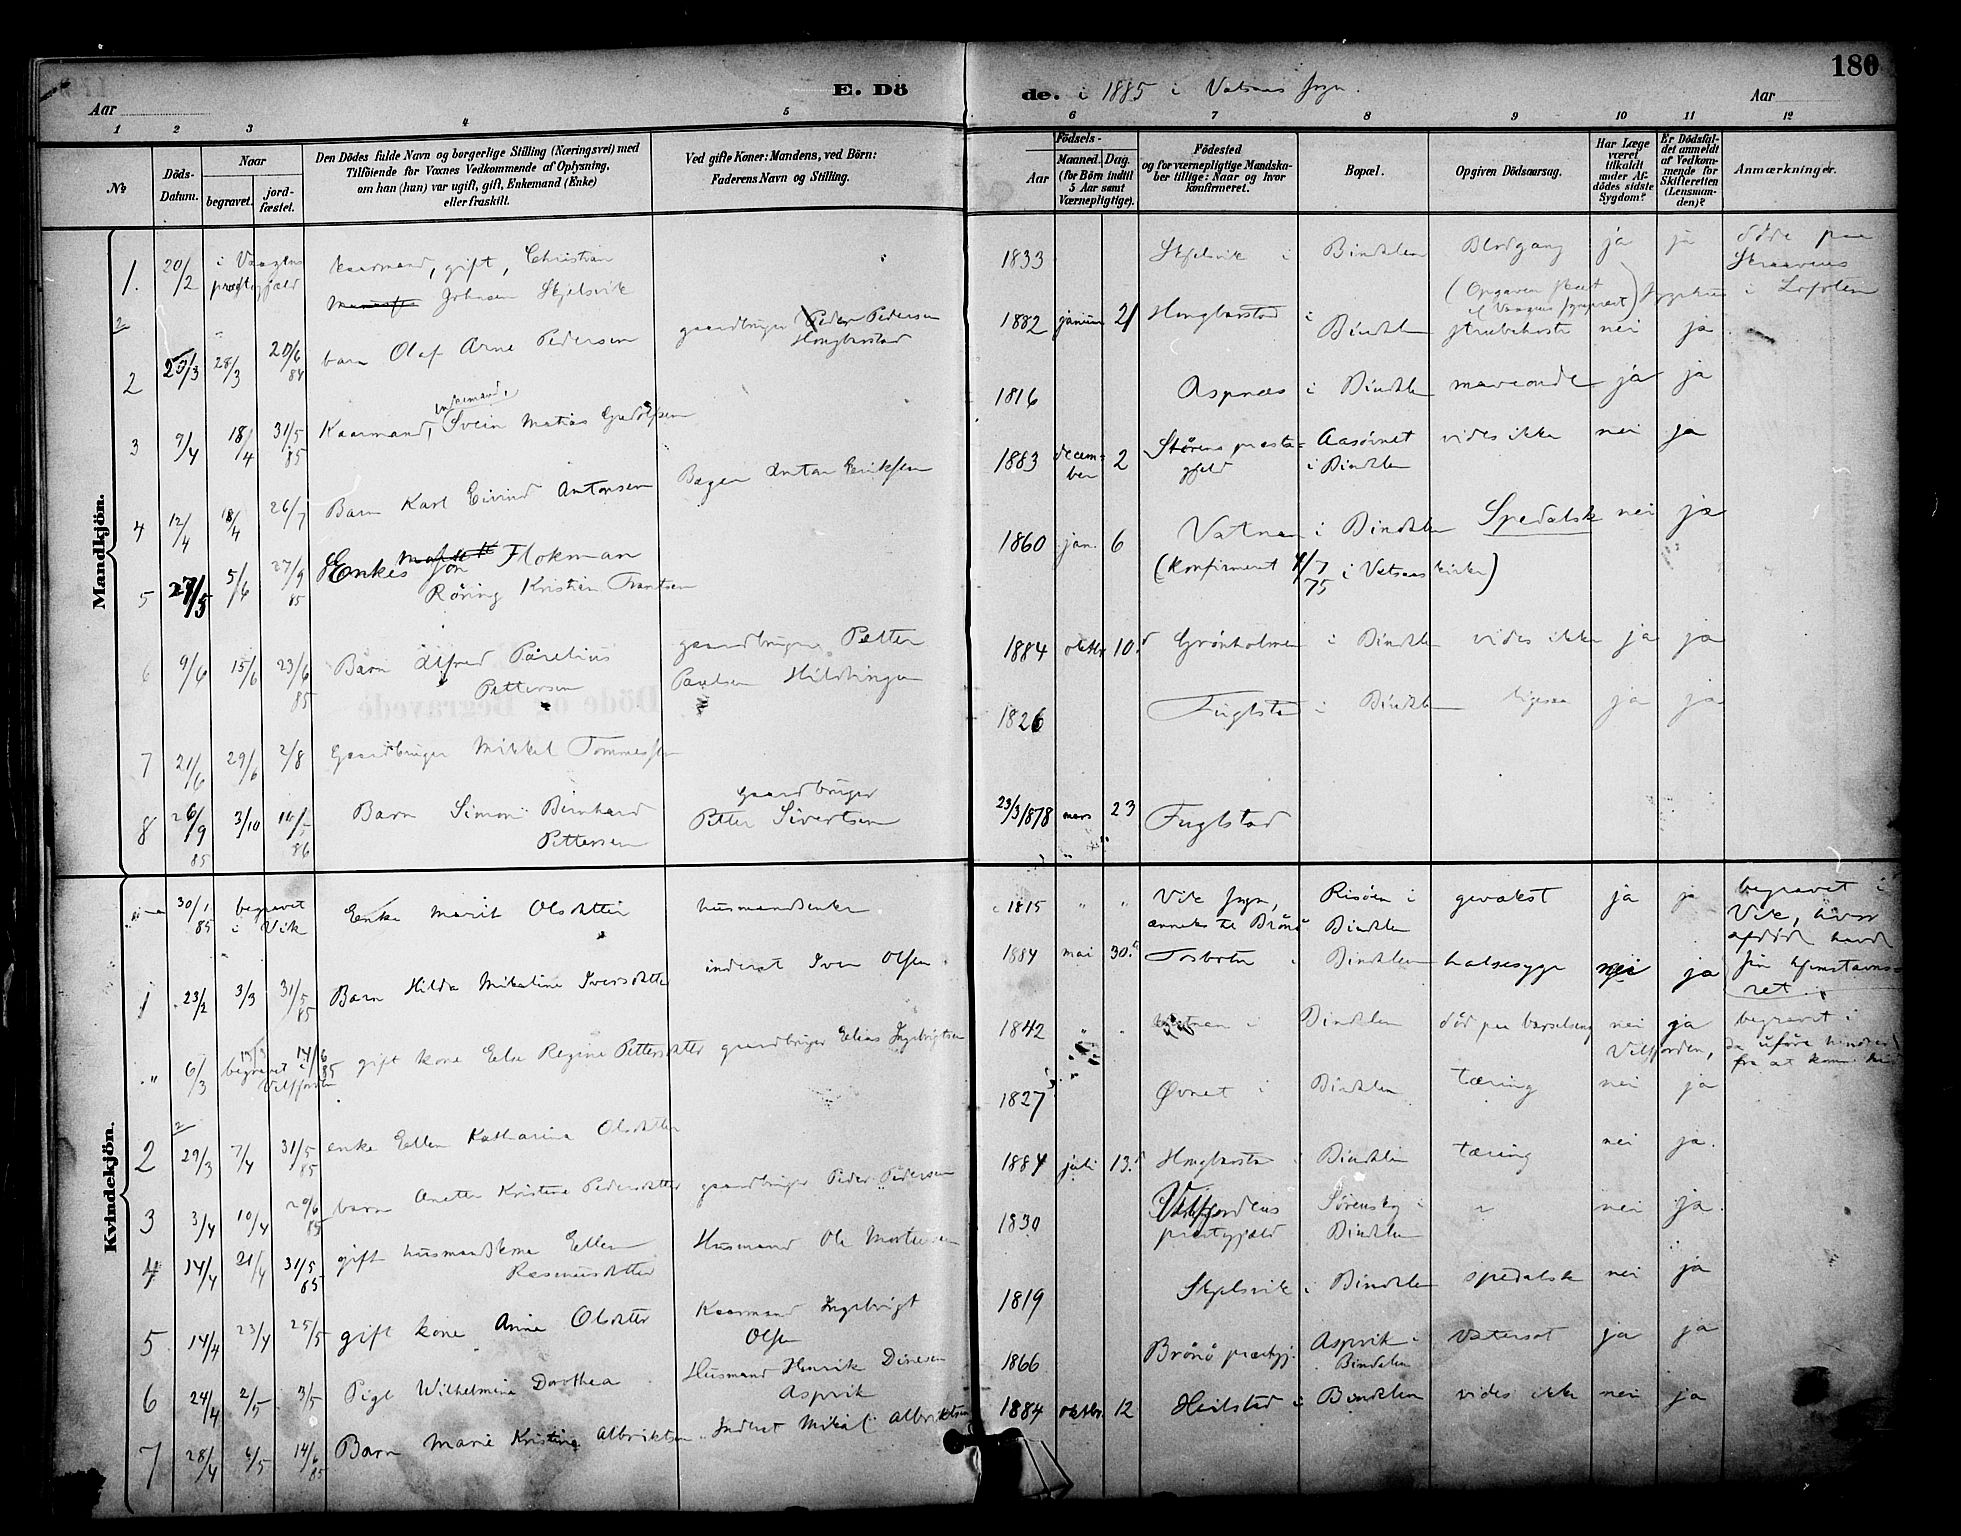 180
E. Dö de. i 1885 i Vatsaas sogn.
Aar
Aar
1 2 3 4 5 6 7 8 9 10 11 12
№
Döds-Datum.
Naar
begravet.
jord-fæstet.
Den Dödes fulde Navn og borgerlige Stilling (Næringsvei) med
Tilföiende for Voxnes Vedkommende af Oplysning,
om han (hun) var ugift, gift, Enkemand (Enke)
eller fraskilt.
Ved gifte Koner: Mandens, ved Börn:
Faderens Navn og Stilling.
Födsels-
Aar
Maaned. Dag.
(for Börn indtil
5 Aar samt
Værnepligtige).
Födested
og for værnepligtige Mandska-
ber tillige: Naar og hvor
konfirmeret.
Bopæl.
Opgiven Dödsaarsag.
Har Læge
været
tilkaldt
under Af-
dödes sidste
Sygdom?
Er Dödsfal-
det anmeldt
af Vedkom-
mende for
Skifteretten
(Lensman-
den)?
Anmærkninger.
Mandkjön.
1. 20/2 i Vaagens prestegjæld kaarmand, gift, Christian Johnsen Skjelsvik 1833 Skjelsvik i Bindalen Blodgang ja ja døde paa Skraaven i Lofoten
(Opgaven fra Vaagens sogneprest)
2 23/3 28/3 20/6 84 barn Olaf Arne Pedersen gaardbruger Peder Pedersen Hongbarstad 1882 januar 21 Hongbarstad i Bindalen strubehoste nei ja
3 9/4 18/4 31/5 85 Kaarmand, enkemand, Svein Matias Gudolfsen 1816 Aspnes i Bindalen maveonde ja ja
4 12/4 18/4 26/7 Barn Karl Eivind Antonsen Bager Anton Eriksen 1883 december 2 Störens prestegjeld Aasörnet i Bindalen vides ikke nei ja
5 27/5 5/6 27/9 85 Enkes søn Flokman Röring Kristian Frantsen 1860 jan. 6 Vatnen i Bindalen Spedalsk nei ja
(konfirmeret 4/7 75 i Vatsaas kirke)
6 9/6 15/6 23/6 85 Barn Alfred Parelius Pettersen gaardbruger Petter Paulsen Hildringen 1884 oktbr 10. Grönholmen i Bindalen vides ikke ja ja
7 21/6 29/6 2/8 Gaardbruger Mikkel Tommessen 1826 Fuglstad i Bindalen ligesaa ja ja
8 26/9 85 3/10 Barn Simon Bernhard Pettersen gaardbruger Petter Sivertsen 23/3 1878 mars 23 Fuglstad
Kvindekjön.
30/1 85 begravet i Vik Enke Marit Olsdatter husmandsenke 1815 " " Vik sogn, anneks til Brönö Risöen i Bindalen gevækst ja ja begravet i Vik, hvor afdöde havde sin hjemstavnsret.
1 23/2 3/3 31/5 85 Barn Hilda Mikaline Iversdatter inderst Iver Olsen 1884 mai 30. Tosbotn i Bindalen halsesyge nei ja
" 6/3 begravet i Vilfjorden 14/6 85 gift kone Else Regine Pettersdatter gaardbruger Elias Ingebrigtsen 1842 " " Vatnen i Bindalen död paa barselseng nei ja begravet i Vilfjorden, da uføre hindrede fra at komme hid
2 29/3 7/4 31/5 85 enke Ellen Katharina Olsdatter 1827 Øvnet i Bindalen tæring nei ja
3 3/4 10/4 20/6 85 barn Anette Kristine Pedersdatter gaardbruger Peder Pedersen 1884 juli 13. Hongbarstad i Bindalen tæring nei ja.
4 14/4 21/4 31/5 85 gift husmandskone Ellen Rasmusdatter Husmand Ole Mortensen 1830 Velfjordens prestegjæld Sörenskog i Bindalen " nei ja.
5 14/4 23/4 25/5 gift kone Anne Olsdatter Kaarmand Ingebrigt Olsen 1819 Skjelsvik i Bindalen spedalsk nei ja
6 24/4 2/5 3/5 Pige Wilhelmine Dorothea Husmand Henrik Dinesen Aspvik 1866 Brönö prestegj. Aspvik i Bindalen Vatersot ja ja
7 28/4 6/5 14/6 85 Barn Marie Kristine Albriktsen Inderst Mikal Albriktsen 1884 oktbr. 12 Heilstad i Bindalen vides ikke nei ja